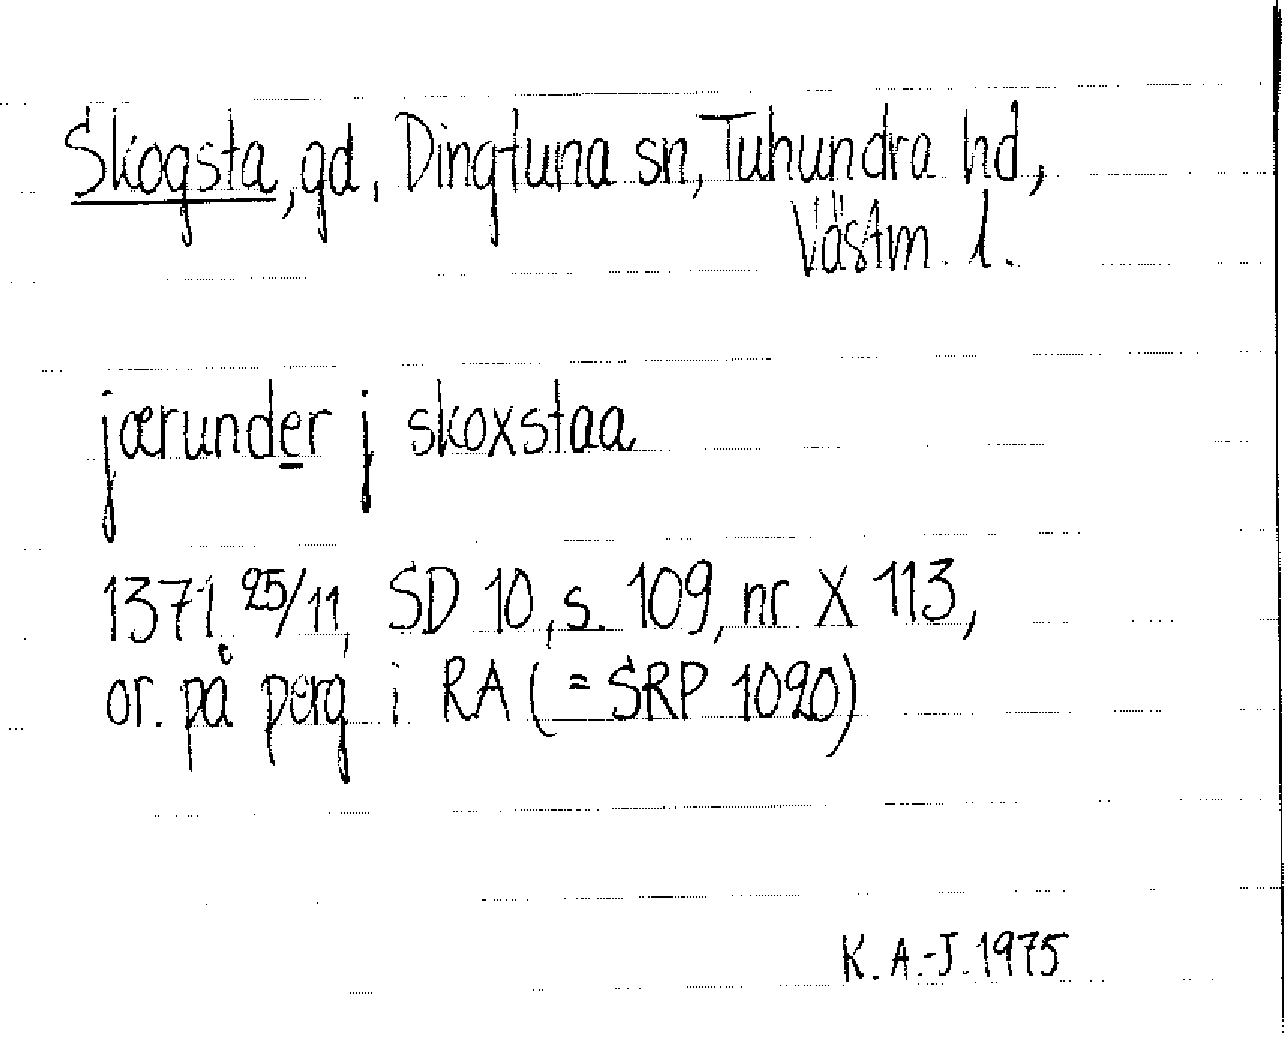 Skogsta, gd, Dingtuna sn, Tuhundra hd,
Västm. l.
jærunder j skoxstaa
1371 25/11, SD 10, s. 109, nr X 113,
or. på perg i RA (= SRP 1090)
K. A.-J. 1975